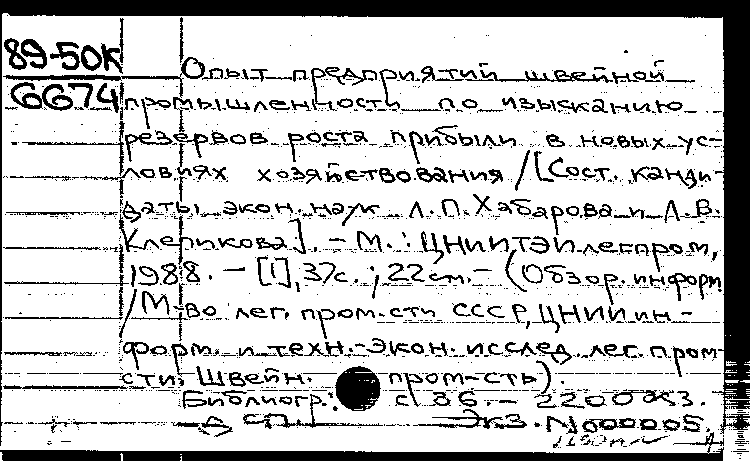 89-50К
6674
Опыт предприятий швейной
промышленности по изысканию
резервов роста прибыли в новых ус-
ловиях хозяйствования / [Сост. канди-
даты экон. наук Л. П. Хабарова и Л. В.
Клепикова]. - М. : ЦНИИТЭИлегпром,
1988. - [1], 37с. ; 22 см. - (Обзор. информ.
/ М-во лег. пром-сти СССР, ЦНИИ ин-
форм. и техн.-экон. исслед. лег. пром-
сти. Швейн. пром-сть).
Библиогр.: с 36. - 2200 экз.
Д СП. Экз. N000005.